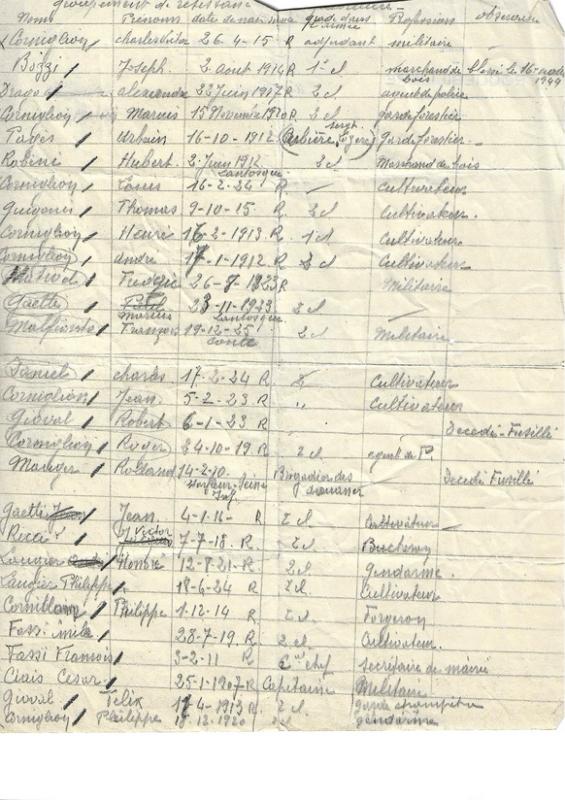 groupement de résistance
Noms Prénoms date de naissance grade dans l'armée Professions
Corniglion Charles Victor 26-4-15 R adjudant militaire
Bozzi Joseph 2 aout 1914 R 1e cl marchand de bois
Drago alexandre 23 Juin 1917 R 2 cl agent de police
Corniglion Marius 15 Novembre 1910 R 2 cl garde forestier
Pagès Urbain 16-10-1912 garde forestier
Robine Hubert 2 Juin 1912 2 cl Marchand de bois
Lantosque
Corniglion Louis 16-2-24 R Cultivateur
Guigonis Thomas 9-10-15 R 2 cl Cultivateur
Corniglion Henri 16-2-1913 R 1 cl Cultivateur
Corniglion andré 17-1-1912 R 2 cl Cultivateur
26-7-1923 R Militaire
Gaetti Marius 23-11-1923 2 cl
Lantosque
François 19-12-25 2 cl Militaire
Daniel charles 17-2-24 R Cultivateur
Corniglion Jean 5-2-23 R " Cultivateur
Gioval Robert 6-1-23 R Décédé-Fusillé
Corniglion Roger 24-10-19 R 2 cl agent de P
Rolland 14-2-10 Brigadier des douanes Décédé Fusillé
Harfleur-Seine Inf.
Gaetti Jean 4-1-16 R 2 cl Cultivateur
Ricci Victor 7-7-18 R 2 cl Bucheron
Laugier Honoré 12-8-21 R 2 cl gendarme
Laugier Philippe 18-6-24 R 2 cl Cultivateur
Philippe 1-12-14 R 2 cl Forgeron
Fassi Emile 28-7-19 R 2 cl Cultivateur
Fassi François 3-2-11 R secrétaire de mairie
Ciais Cesar 25-1-1907 R Capitaine Militaire
Gioval Felix 17-4-1913 R 2 cl garde champêtre
Corniglion Philippe 12-1920 2 cl gendarme